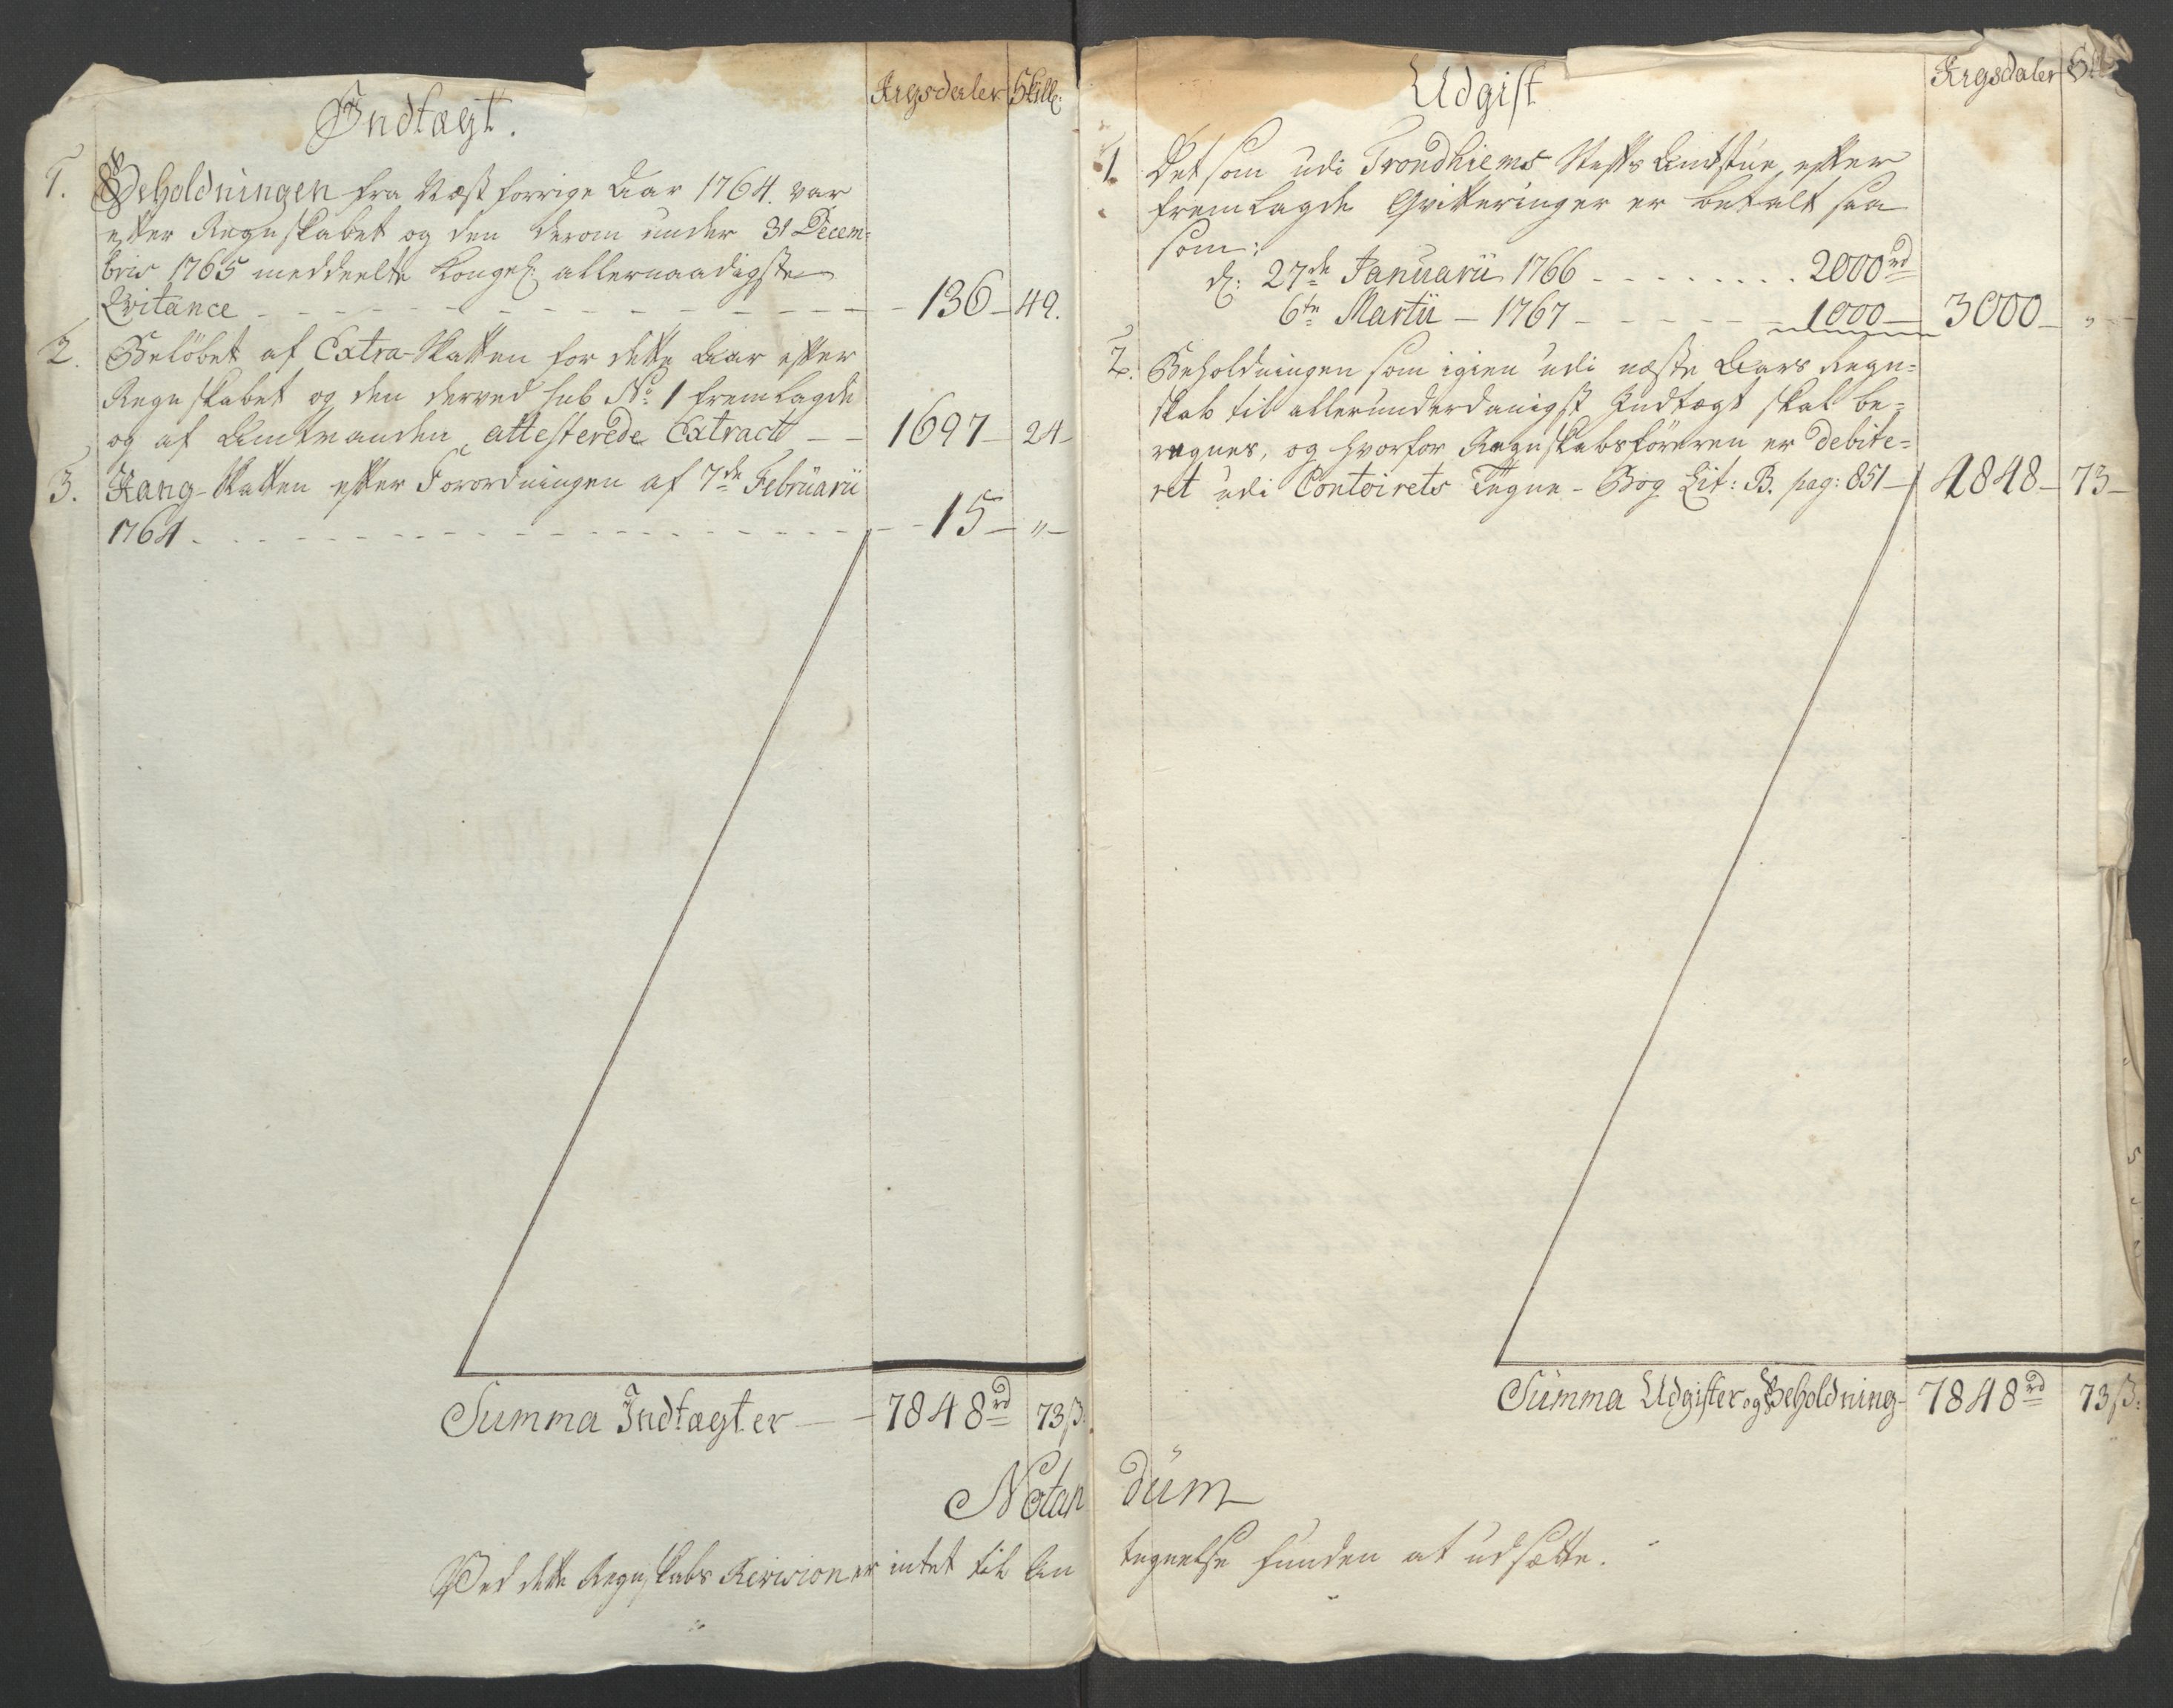 Indtægt.
Rigsdaler Skill:
1. Beholdningen fra Næst forrige Aar 1764. var
efter Regnskabet og den derom under 31 Decem-
bris 1765 meddeelte Kongel: allernaadigste
Qvitance - - - 136 - 49.
2. Beløbet af Extra-Skatten for dette Aar efter
Regnskabet og den derved sub No. 1 fremlagde
og af Amtmanden attesterede Extract - - 1697 - 24 -
3. Rang-Skatten efter Forordningen af 7de Februarii
1764 - - - 15 - " -
Summa Indtægter - - 7848 rd 73 ß:
Udgift
Rigsdaler
1. Det som udi Trondhiems Stifts Amtstue, efter
fremlagde Qvitteringer er betalt saa
som:
d: 27de Januarii 1766 - - - 2000 rd
6te Martii - 1767 - - - 1000 - 3000 - " -
2. Beholdningen som igien udi næste Aars Regn-
skab til allerunderdanigst Indtægt skal be-
regnes, og hvorfor Regnskabsføreren er debite-
ret udi Contoirets Tegne-Bog Lit: B. pag: 851 - 4848 - 73 -
Summa Udgifter og Beholdning - 7848 rd 73 ß:
Notandum
Ved dette Regnskabs Revision er intet til Antegnelse funden at udsætte.